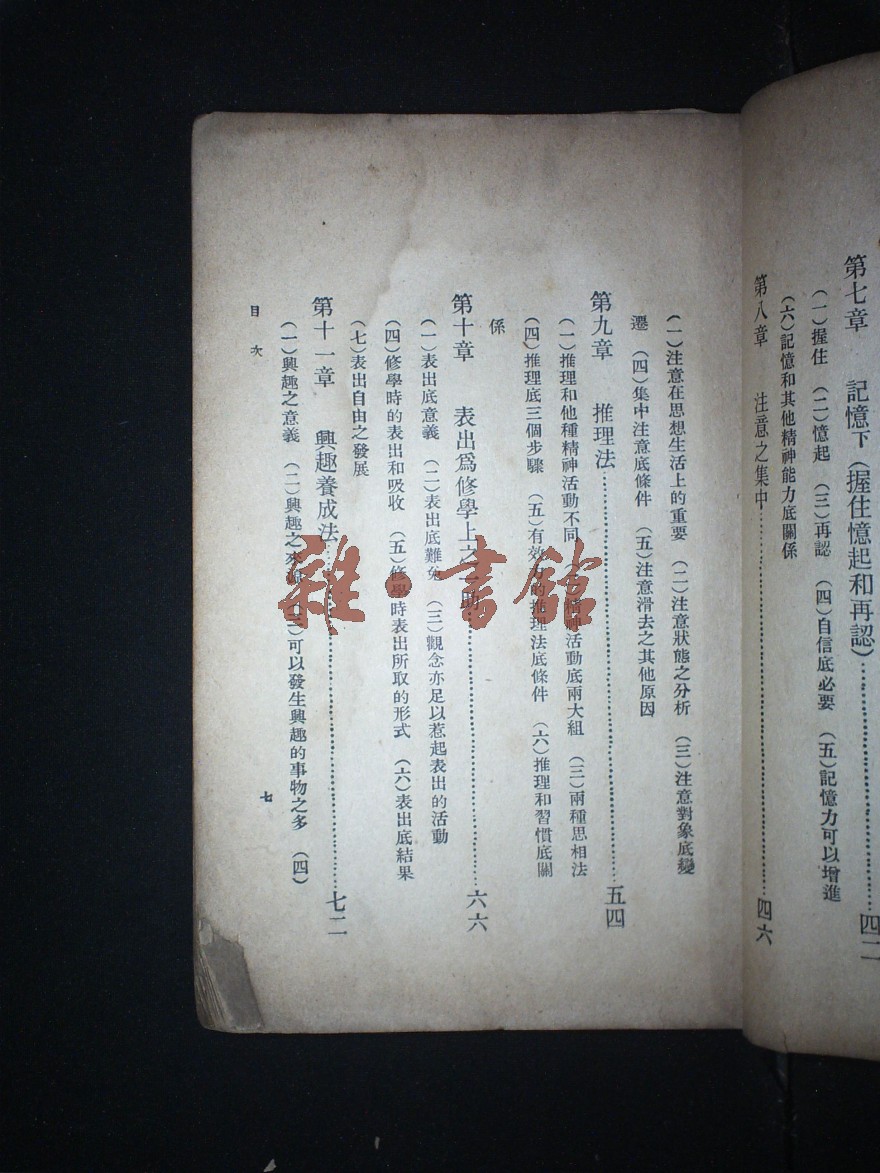 第七章 記憶下（握住憶起和再認）……四二
（一）握住 （二）憶起 （三）再認 （四）自信底必要 （五）記憶力可以增進
（六）記憶和其他精神能力底關係
第八章 注意之集中……四六
（一）注意在思想生活上的重要 （二）注意狀態之分析 （三）注意對象底變
遷 （四）集中注意底條件 （五）注意滑去之其他原因
第九章 推理法……五四
（一）推理和他種精神活動不同 精神活動底兩大組 （三）兩種思相法
（四）推理底三個步驟 （五）有效力的推理法底條件 （六）推理和習慣底關
係
第十章 表出爲修學上之一助……六六
（一）表出底意義 （二）表出底難免 （三）觀念亦足以惹起表出的活動
（四）修學時的表出和吸收 （五）修學時表出所取的形式 （六）表出底結果
（七）表出自由之發展
第十一章 興趣養成法……七二
（一）興趣之意義 （二）興趣之來 （三）可以發生興趣的事物之多 （四）
目次
七
雜·書館